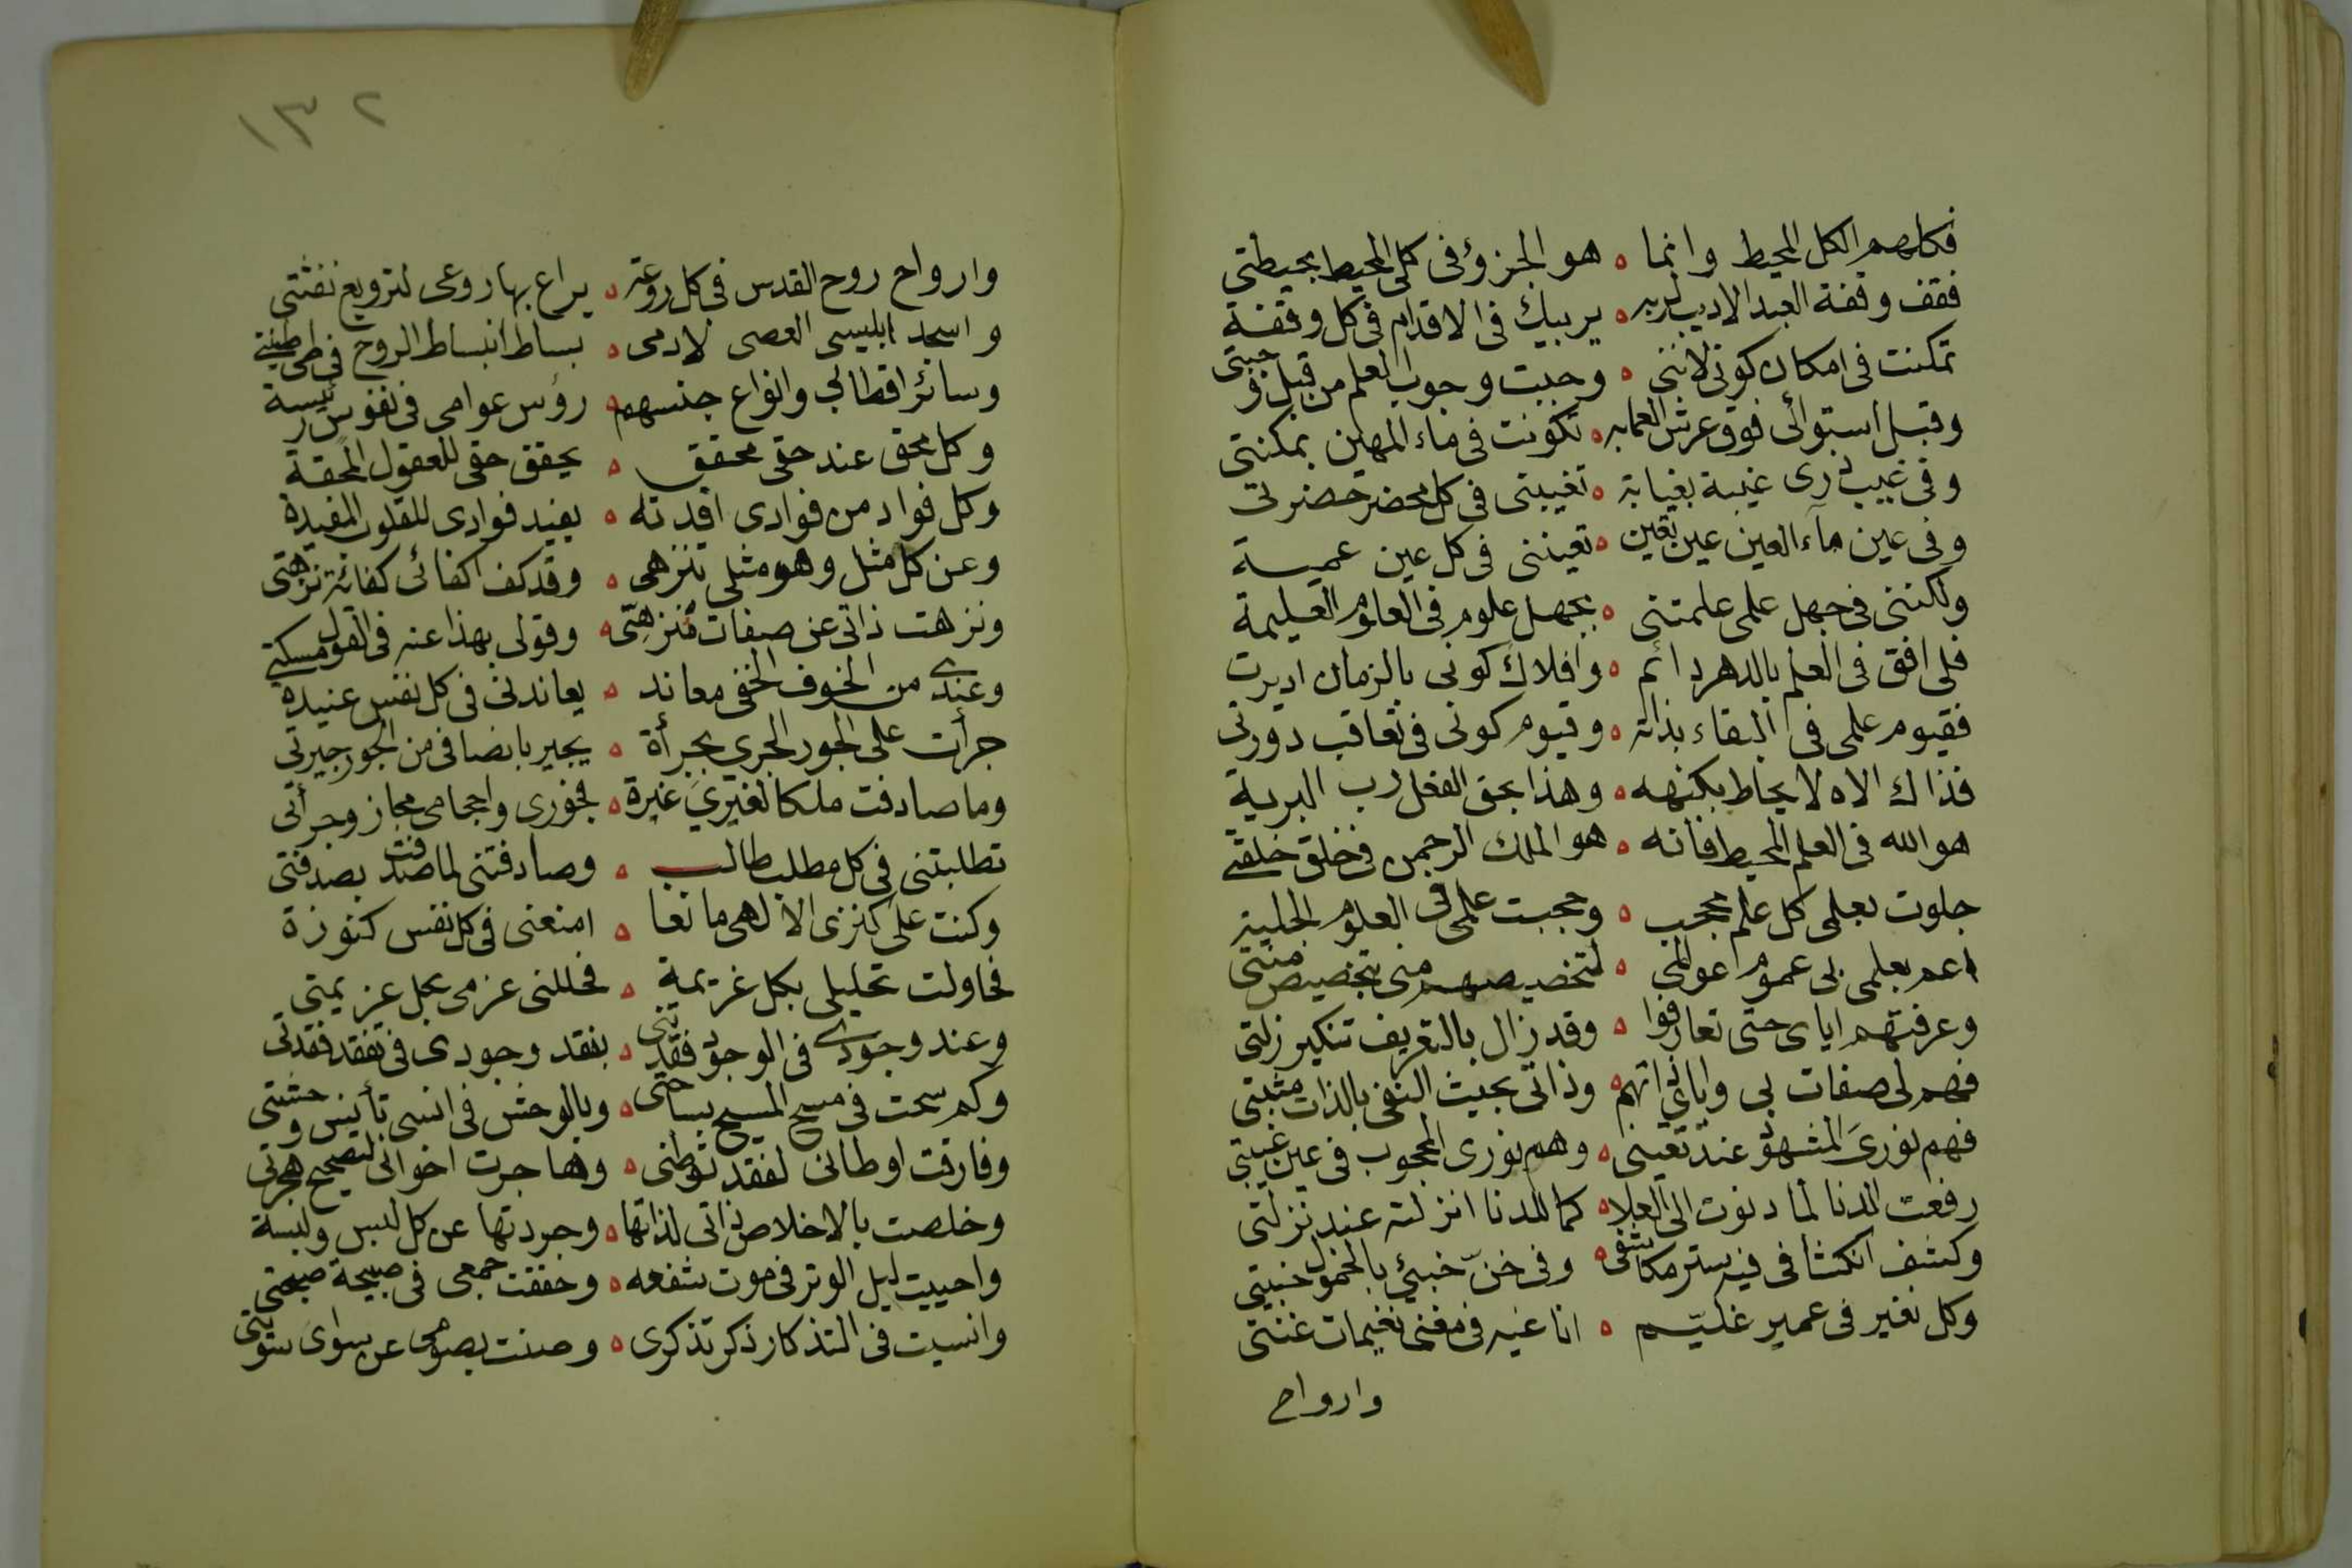 فكلهم الكل المحيط وانما ه هو الجزؤ فى كلى المحيط بحيطتى
فقف وقفة العبد الاديب لربه ه يربيك فى الاقدام فى كل وقفة
تمكنت فى امكان كونى لاننى ه وجبت وجوب العلم من قبل وجبتى
وقبل استوائى فوق عرش العمابه ه تكونت فى ماء المهين بمكنتى
وفى غيب ذرى غيبة بغيابة ه تغيبتى فى كل محضر حضرتى
وفى عين مآء العين عين تعين ه تعيننى فى كل عين عميسة
ولكننى فى جهل علمى علمتنى ه بجهل علوم فى العلوم العليمة
فلى افق فى العلم بالدهر دائم ه وافلاك كونى بالزمان اديرت
فقيوم علمى فى البقاء بذاته ه وقيوم كونى فى تعاقب دورتى
فذاك الاه لا يحاط بكنهه ه وهذا بحق الفعل رب البرية
هو الله فى العلم المحيط فانه ه هو الملك الرحمن فى خلق خلقتى
جلوت بعلمى كل علم محجب ه وحجبت علمى فى العلوم الجلية
اعم بعلمى بى عموم عوالمى ه لتخصيصهم منى بتخصيص منتى
وعرفتهم اياى حتى تعارفوا ه وقد زال بالتعريف تنكير زلتى
فهم لى صفات بى واياى ذاتهم ه وذاتى بحيث النفى بالذات مثبتى
فهم نورى المشهود عند تعينى ه وهم نورى المحجوب فى عين غيبتى
رفعت الدنا لما دنوت الى العلا ه كما للدنا انزلته عند نزلتى
وكشف انكشافى فيه ستر مكاشفى ه وفى خنّ خبئى بالخمول خبيتى
وكل نغير فى عمير غليّم ه انا غيه فى مغنى نغيمات غنتى
وارواح
١٣٢
وارواح روح القدس فى كل روعة ه يراع بها روعى لترويع نفثتى
واسجد ابليسى العصى لادمى ه بساط انبساط الروح فى طى طينتى
وسائر اقطابى وانواع جنسهم ه رؤس عوامى فى نفوس رئيسة
وكل محق عند حقى محقق ه يحقق حقى للعقول المحقة
وكل فواد من فوادى افدته ه يفيد فوادى للقلوب المفيدة
وعن كل مثل وهو مثلى تنزهى ه وقد كف اكفائى كفائة نزهتى
ونزهت ذاتى عن صفات تنزهتى ه وقولى بهذا عنه فى القول مسكتى
وعندى من الخوف الخفى معاند ه يعاندنى فى كل نفس عنيدة
جرأت على الجور الجرى بجرأة ه يجير بانصافى من الجور جيرتى
وما صادفت ملكا لغيرى غيرة ه فخورى واحجامى مجاز وجرأتى
تطلبتنى فى كل مطلب طالب ه وصادفتنى لما صدفت بصدفتى
وكنت على كنزى الالهى مانعا ه امنعنى فى كل نفس كنوزة
فحاولت تحليلى بكل عزيمة ه فحللنى عزمى بحل عزيمتى
وعند وجودى فى الوجود فقدتنى ه بفقد وجودى فى تفقد فقدتى
وكم سحت فى مسح المسيح بساحتى ه وبالوحش فى انسى تأنيس وحشتى
وفارقت اوطانى لفقد توطنى ه وهاجرت اخوانى لتصحيح هجرتى
وخلصت بالاخلاص ذاتى لذاتها ه وجردتها عن كل لبس ولبسة
واحييت ليل الوتر فى موت شفعه ه وحققت جمعى فى صبيحة صبحتى
وانسيت فى التذكار ذكر تذكرى ه وصنت بصومى عن سواى سويتى